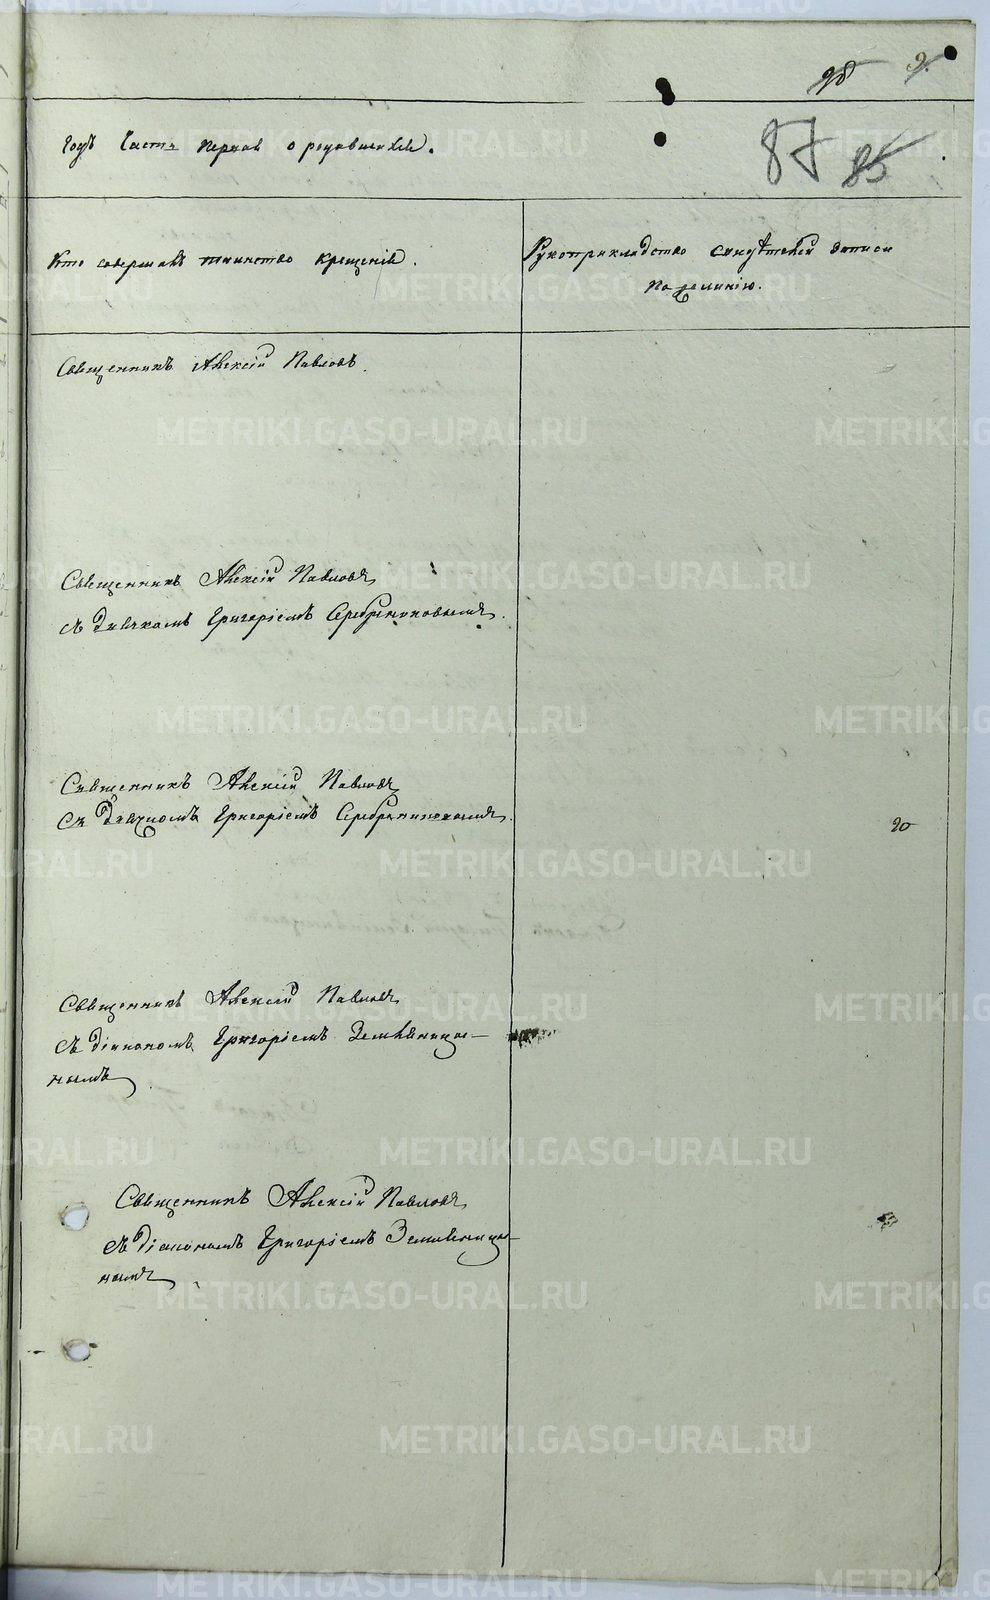 28 9.
годъ Часть первая о родившихся.
87 85
Кто совершалъ таинство крещенія.
Рукоприкладство свидѣтелей записи
по желанію.
Священникъ Алексій Павловъ.
Священникъ Алексій Павловъ
съ дьячкомъ Григоріемъ Серебрениковымъ.
Священникъ Алексій Павловъ
Съ дьячкомъ Григоріемъ Серебрениковымъ.
20
Священникъ Алексій Павловъ
съ діакономъ Григоріемъ Земляницы-
нымъ
Священникъ Алексій Павловъ
съ діакономъ Григоріемъ Земляницы-
нымъ
METRIKI.GASO-URAL.RU